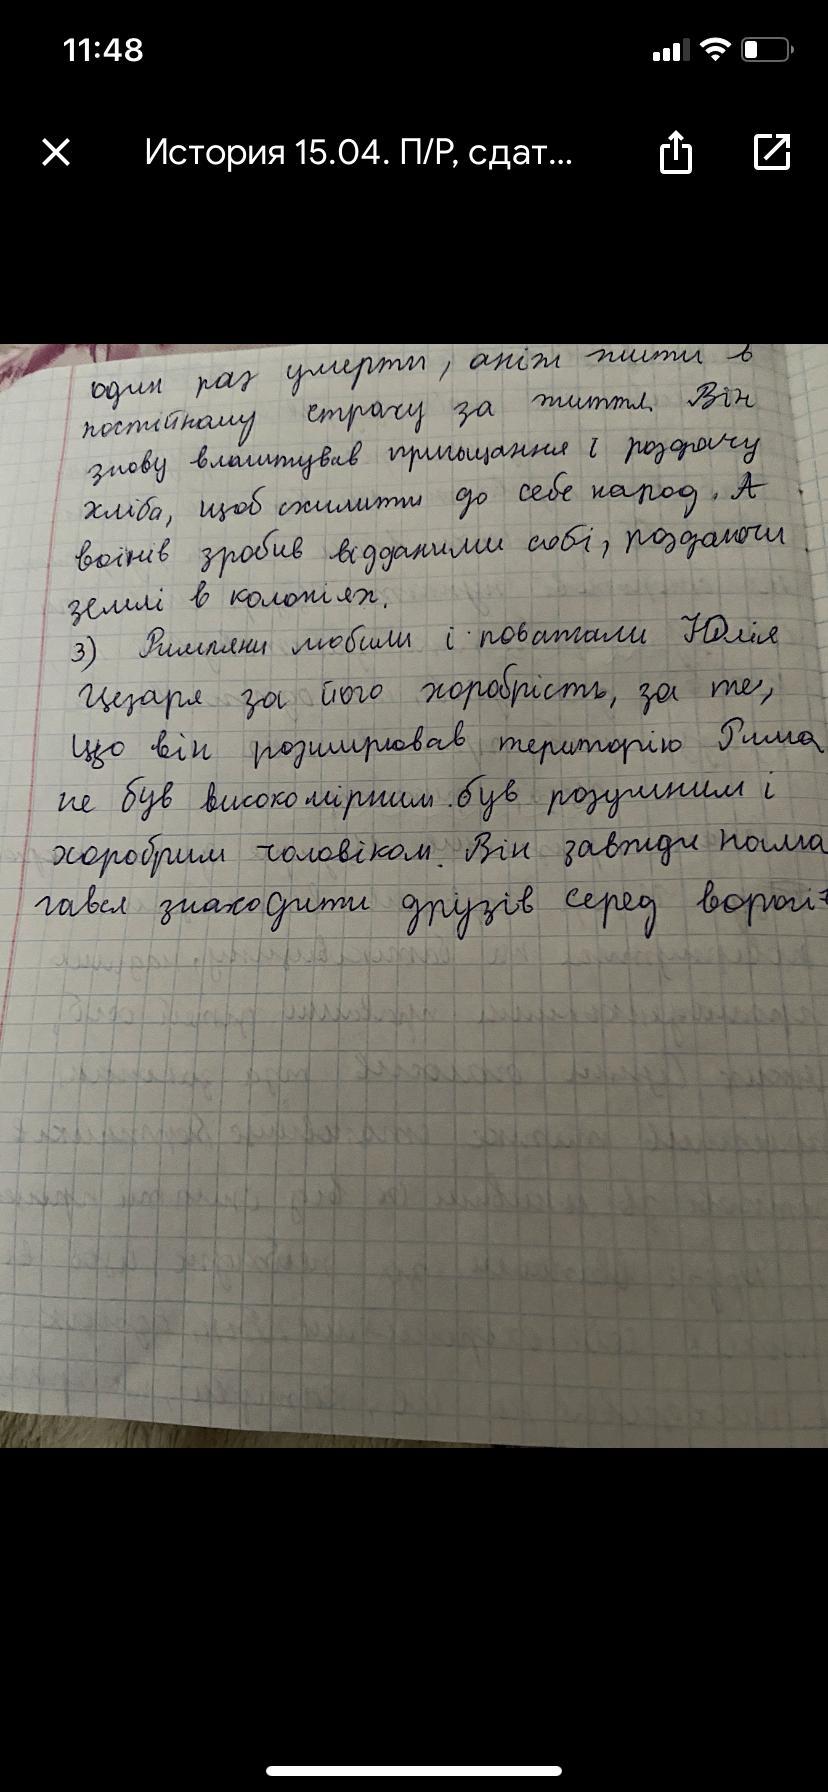 11:48
История 15.04. П/Р, сдат...
один раз умерти, аніж жити в
постійному страху за життя. Він
знову влаштував пригощання і роздачу
хліба, щоб схилити до себе народ. А
воїнів зробив відданими собі, роздаючи
землі в колоніях.
3) Римляни любили і поважали Юлія
Цезаря за його хоробрість, за те,
що він розширював територію Рима
не був високомірним був розумним і
хоробрим чоловіком. Він завжди нама
гався знаходити друзів серед ворогів